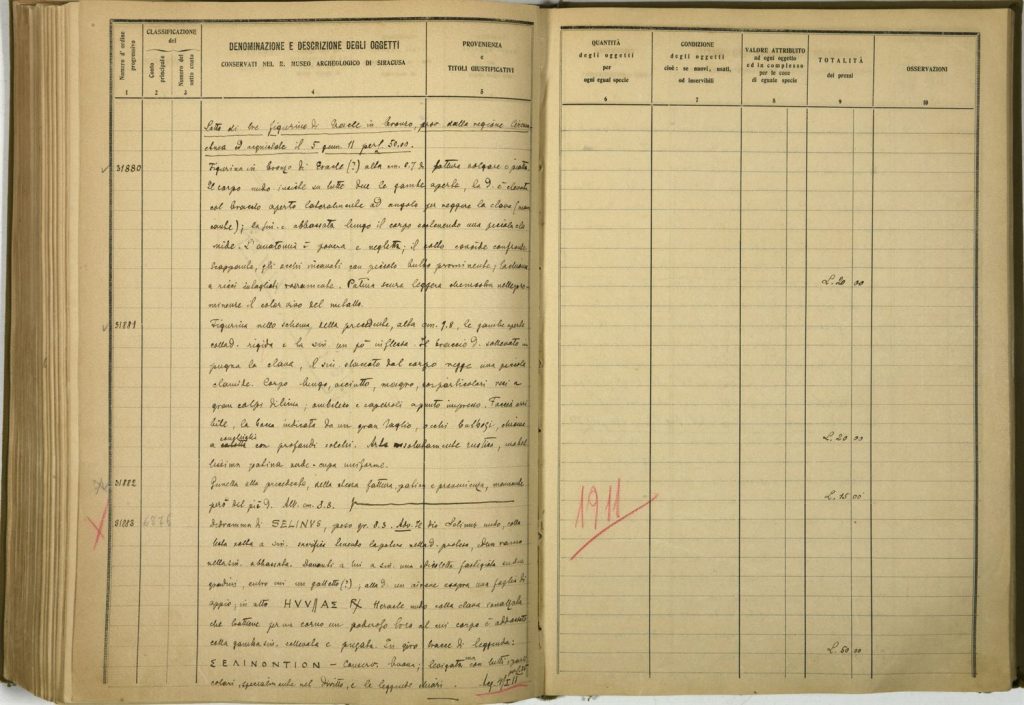 Numero d'ordine progressivo
CLASSIFICAZIONE
del
Conto principale
Numero del sotto conto
DENOMINAZIONE E DESCRIZIONE DEGLI OGGETTI
CONSERVATI NEL R. MUSEO ARCHEOLOGICO DI SIRACUSA
PROVENIENZA
e
TITOLI GIUSTIFICATIVI
1 2 3 4 5
Lotto di tre figurine di Eracle in bronzo, prov. dalla regione
acquistate il 5 giugn. 11 per L. 50.00.
31880 Figurina in bronzo di Eracle (?) alta cm. 8.7 di fattura volgare
Il corpo nudo insiste su tutte due le gambe aperte, la d. è elevata
col braccio aperto lateralmente ad angolo per reggere la clava (man
cante); la sin. è abbassata lungo il corpo sostenendo una piccola cla
mide. L'anatomia è povera e negletta; il volto
gli occhi incavati con piccolo bulbo prominente; la chioma
a ricci
Patina scura leggera
il color vivo del metallo.
31881 Figurina nello schema della precedente, alta cm. 9.8, le gambe aperte
colla d. rigida e la sin. un pò inflessa. Il braccio d. sollevato im
pugna la clava, il sin. staccato dal corpo regge una piccola
clamide. Corpo lungo, asciutto, magro, coi particolari resi a
gran colpi di lima; ombelico e capezzoli a punto impresso. Faccia orri
bile, la bocca indicata da un gran taglio, occhi bulbosi, chioma
a con profondi solchi. Arte assolutamente rustica, nobi
lissima patina verde-cupa uniforme.
31882 Gemella alla precedente, della stessa fattura, patina e provenienza, mancante
però del piè d. Alt. cm. 8.8.
31883 Didramma di SELINVS, peso gr. 8.3. Adv. Il dio Selinus nudo, colla
testa volta a sin. sacrifica tenendo la patera nella d. protesa, ed un ramo
nella sin. abbassata. Davanti a lui a sin. una edicoletta fastigiata su due
gradini, entro cui un galletto (?); alla d. un airone sopra una foglia di
appio; in alto HVVΨΑΣ Rx Heracle nudo colla clava innalzata
che trattiene per un corno un poderoso toro al cui corpo è addossato
colla gamba sin. sollevata e piegata. In giro tracce di leggenda:
ΣΕΛΙΝΟΝΤΙΟΝ – Conserv. buona; levigata ma con tutti i parti
colari, specialmente nel diritto, e le leggende chiari.
QUANTITÀ
degli oggetti
per
ogni egual specie
CONDIZIONE
degli oggetti
cioè: se nuovi, usati,
od inservibili
VALORE ATTRIBUTO
ad ogni oggetto
ed in complesso
per le cose
di eguale specie
TOTALITÀ
dei prezzi
OSSERVAZIONI
6 7 8 9 10
L. 20 00
L. 20 00
L. 15 00
1911
L. 50 00